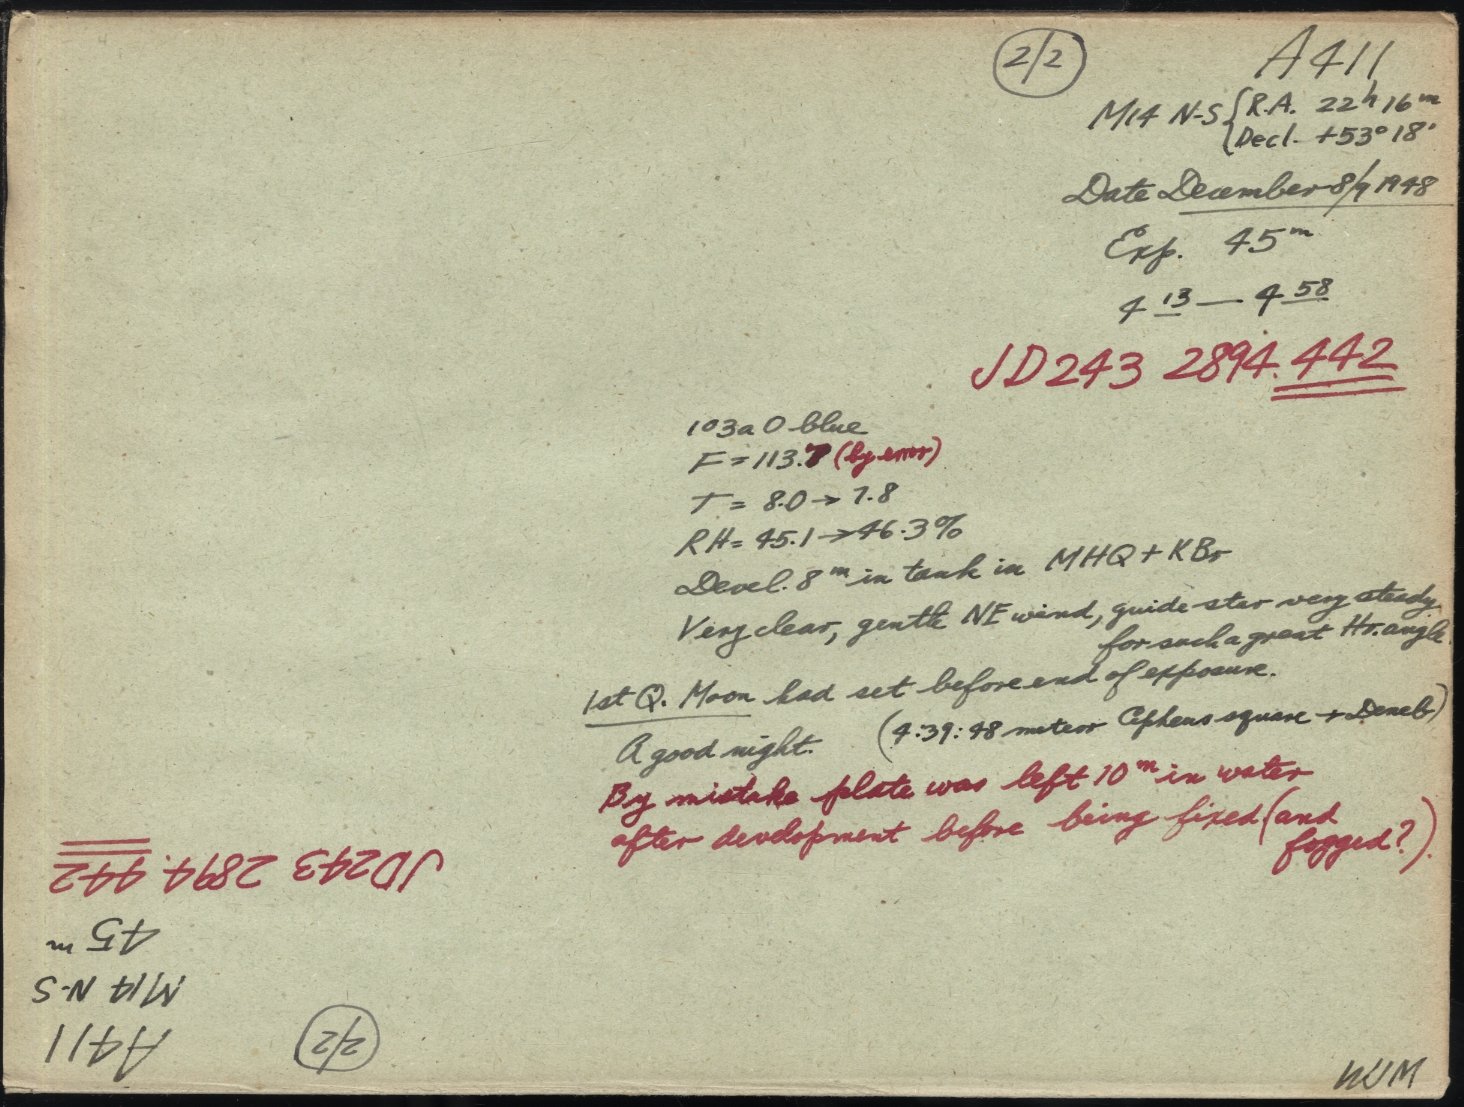 2/2
A411
M14 N-S { R.A. 22h 16m
Decl. +53° 18'
Date December 8/9 1948
Exp. 45m
4 13 — 4 58
JD243 2894.442
103a O blue
F = 113.7 (by error)
T = 8.0 → 7.8
RH = 45.1 → 46.3%
Devel. 8m in tank in MHQ + KBr
Very clear, gentle NE wind, guide star very steady
for such a great Hr. angle.
1st Q. Moon had set before end of exposure.
A good night. (4:39:48 meteor Cepheus square → Deneb)
By mistake plate was left 10m in water
after development before being fixed (and
fogged?).
JD243 2894.442
45 m
M14 N-S
A411
2/2